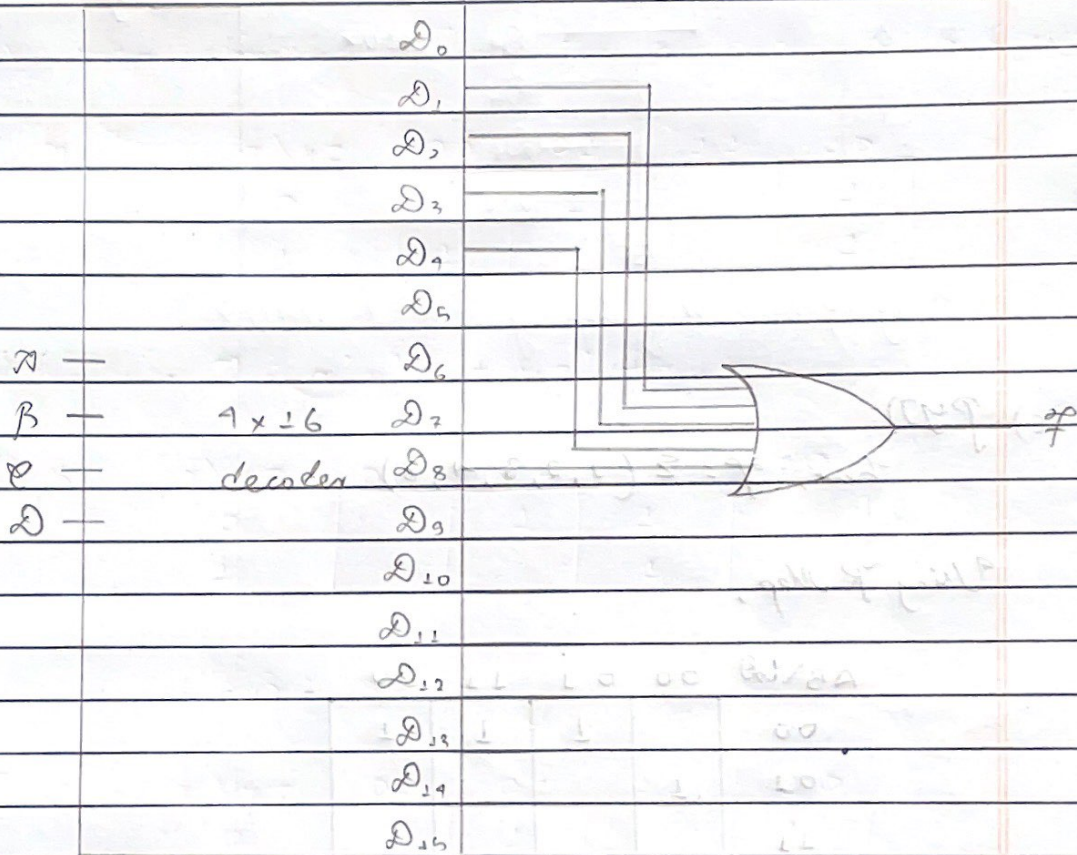 D0
D1
D2
D3
D4
D5
A D6
B 4 x 16 D7
C decoder D8
D D9
D10
D11
D12
D13
D14
D15
F